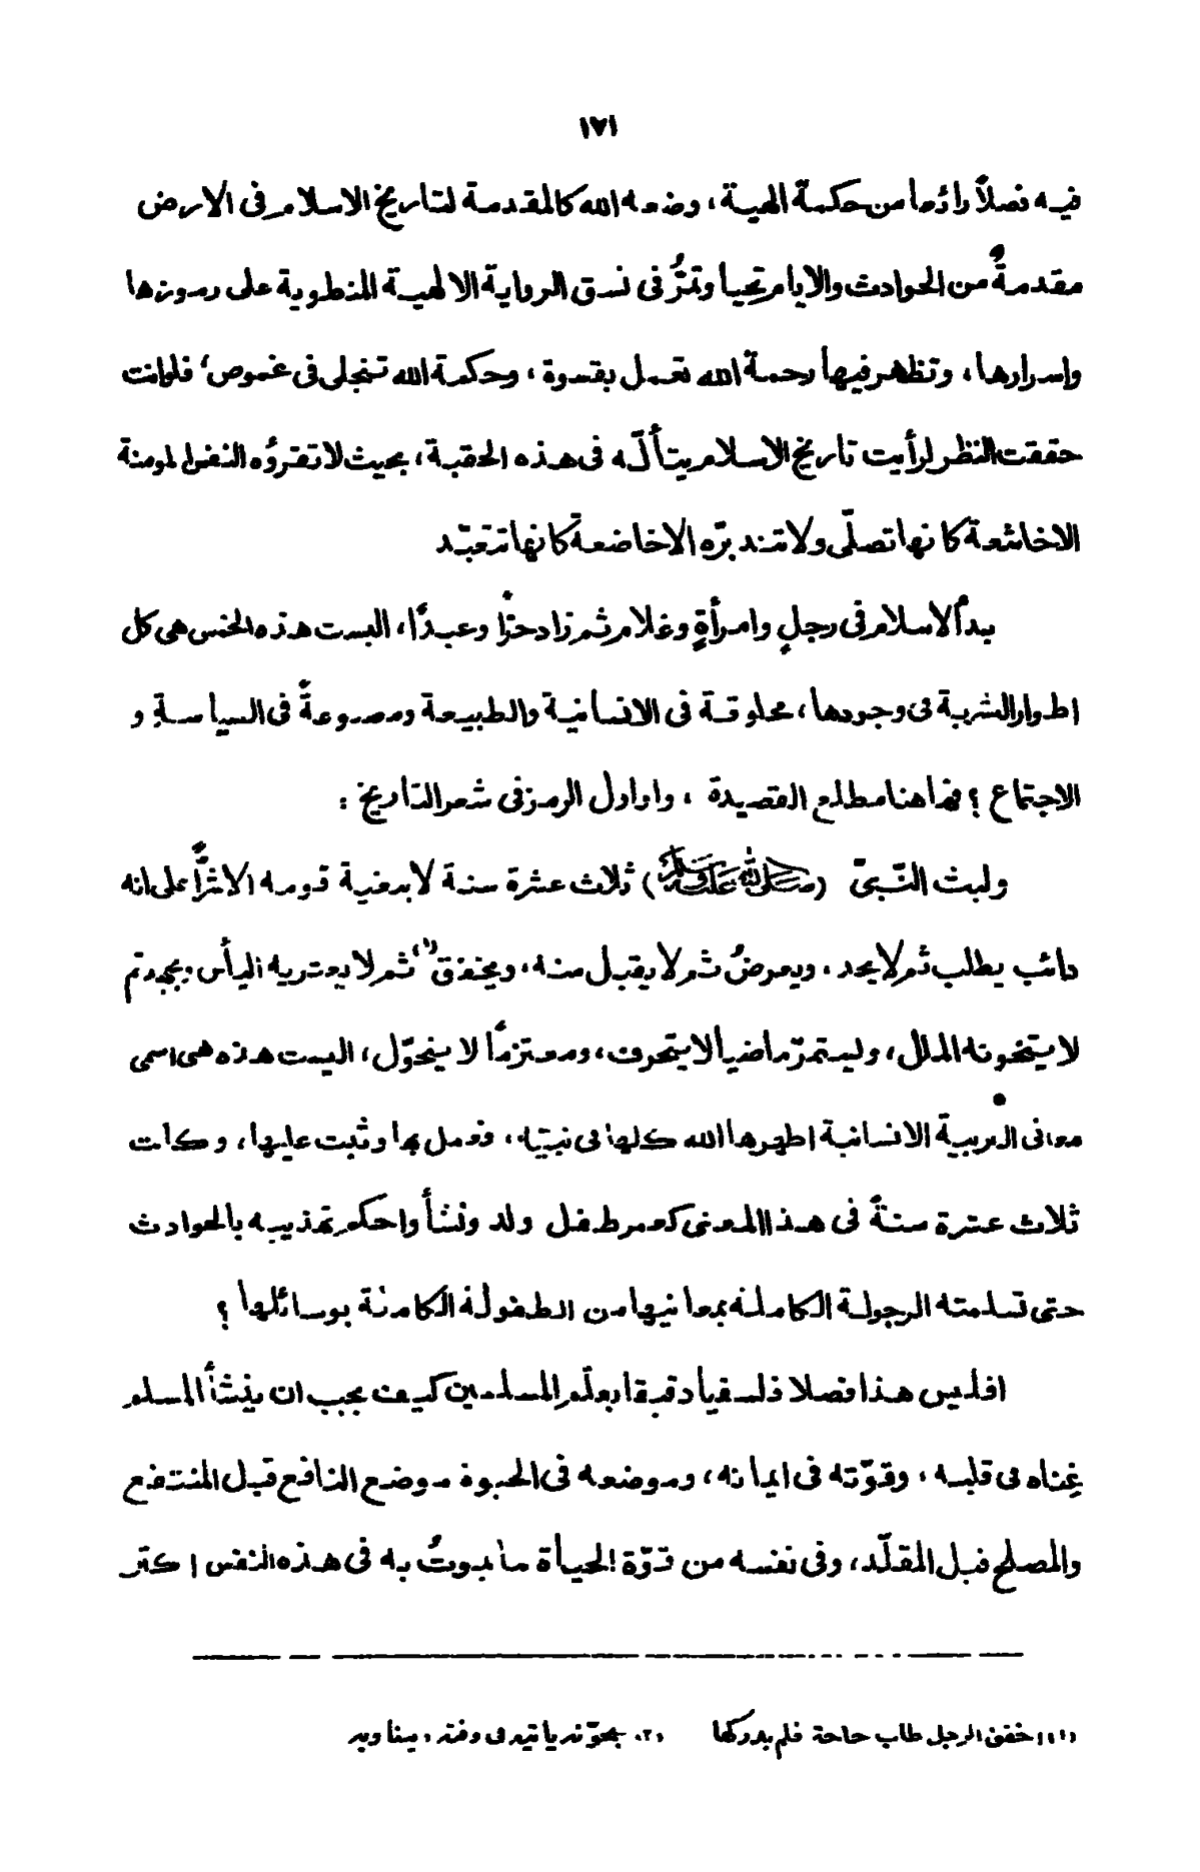 ١٧١
فيه فصلاً رائعا من حكمة الهية، وضعه الله كالمقدمة لتاريخ الاسلام فى الارض
مقدمةٌ من الحوادث والايام تحيا وتمرُّ فى نسق الرواية الالهية المنطوية على رموزها
واسرارها، وتظهر فيها رحمة الله تعمل بقسوة، وحكمة الله تنجلى فى غموض، فلوانت
حققت النظر لرأيت تاريخ الاسلام يتألّه فى هذه الحقبة، بحيث لا تقرؤه النفس المومنة
الا خاشعة كانها تصلّى ولا تتدبّره الا خاضعة كانها تتعبّد
بدأ الاسلام فى رجلٍ وامرأةٍ وغلام ثم زاد حرًّا وعبدًا، اليست هذه الخمس هى كل
اطوار البشرية فى وجودها، مخلوقة فى الانسانية والطبيعة ومصنوعةً فى السياسة و
الاجتماع ؟ فهاهنا مطلع القصيدة ، واول الرمز فى شعر التاريخ :
ولبث النّبىّ (ﷺ) ثلاث عشرة سنة لا يبغيه قومه الا شرًّا على انه
دائب يطلب ثم لا يجد ، ويعرضُ ثم لا يقبل منه، ويخفق(١) ثم لا يعتريه اليأس، ويجهد ثم
لا يتخونه الملل، وليستمرّ ماضيا لا يتحرف، ومعتزمًا لا يتحوّل، اليست هذه هى اسمى
معانى التربية الانسانية اظهرها الله كلها فى نبيّه، فعمل بها وثبت عليها، وكانت
ثلاث عشرة سنةً فى هذا المعنى كعمر طفل ولد ونشأ واحكم تهذيبه بالحوادث
حتى تسلمته الرجولة الكاملة بمعانيها من الطفولة الكامنة بوسائلها ؟
افليس هذا فصلا فلسفيا دقيقا يعلّم المسلمين كيف يجب ان ينشأ المسلم
غِناه فى قلبه ، وقوّته فى ايمانه، وموضعه فى الحيوة موضع النافع قبل المنتفع
والمصلح قبل المقلّد، وفى نفسه من قوّة الحياة ما يموتُ به فى هذه النفس اكثر
(١) اخفق الرجل طلب حاجة فلم يدركها (٢)